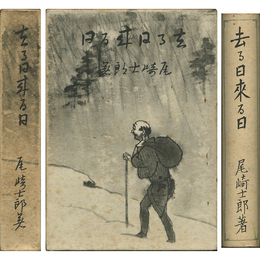 去る日来る日
尾崎士郎著
去る日来る日
尾崎士郎著
去る日來る日
尾崎士郎著